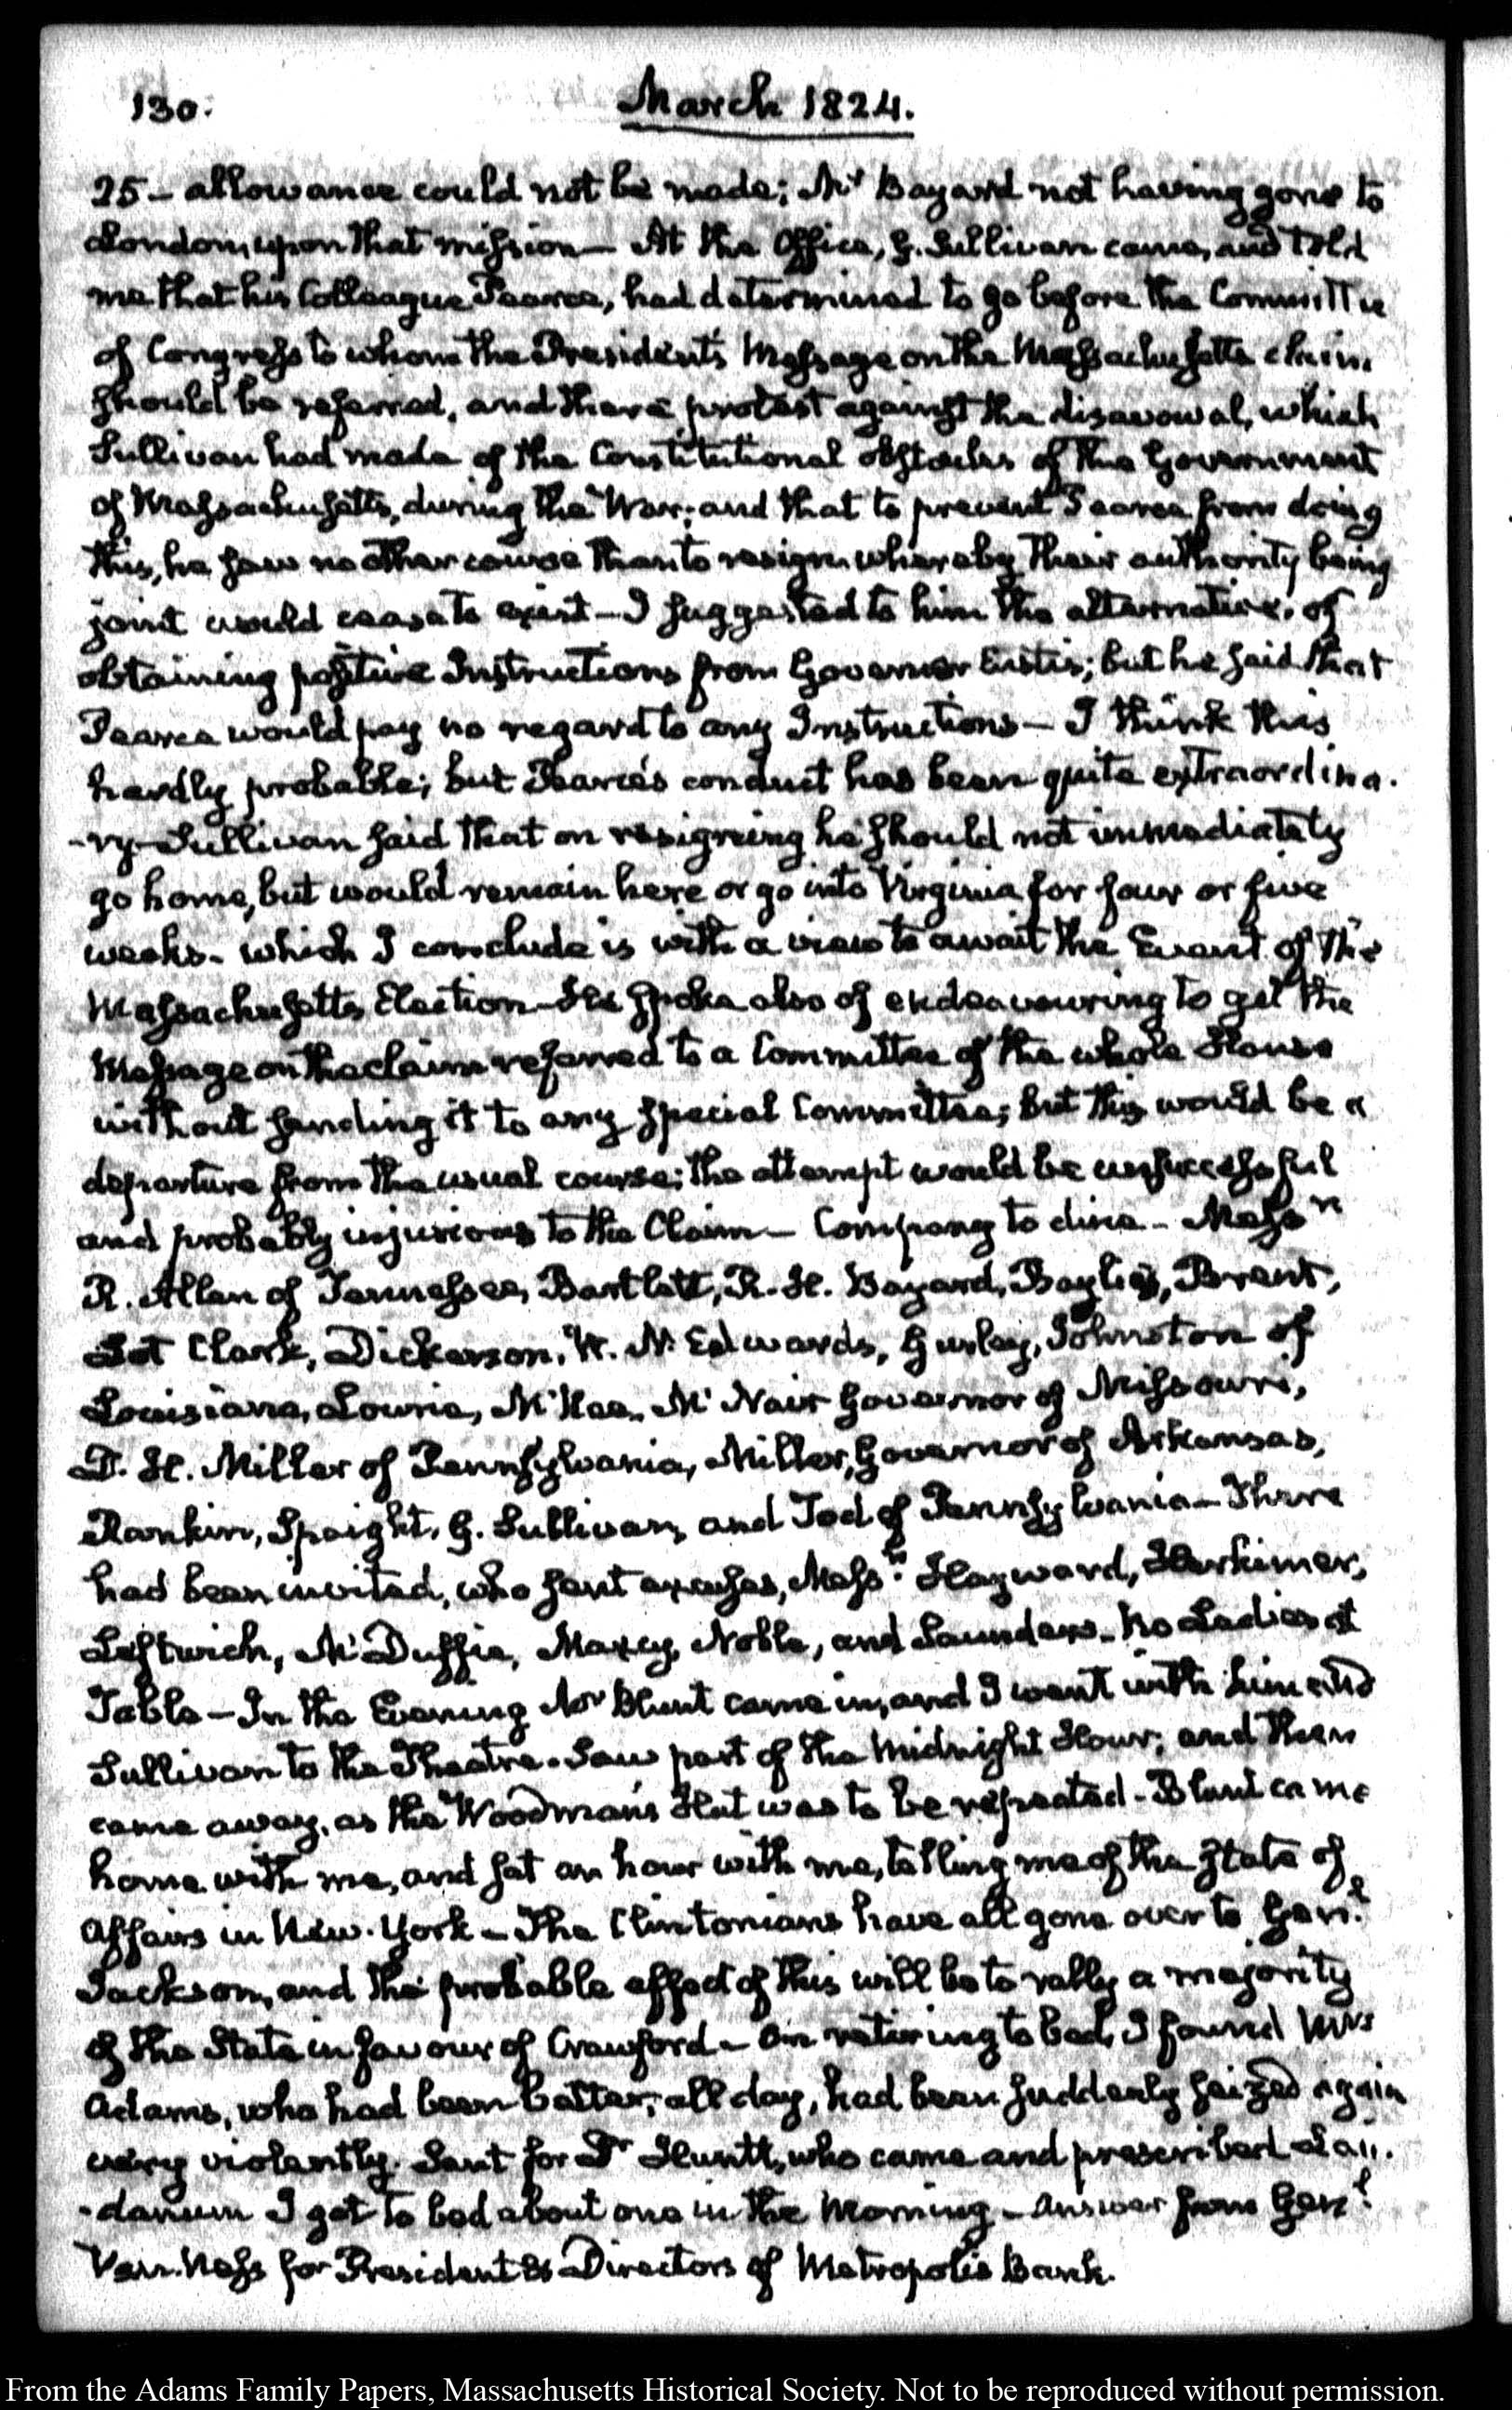 130.
March 1824.
25 – allowance could not be made; Mr Bayard not having gone to
London, upon that mission – At the Office, G. Sullivan came, and told
me that his Colleague Pearce, had determined to go before the Committee
of Congress to whom the President's Message on the Massachusetts claim
should be referred, and there protest against the disavowal, which
Sullivan had made of the Constitutional obstacles of the Government
of Massachusetts, during the War; and that to prevent Pearce from doing
this, he saw no other course than to resign whereby their authority being
joint would cease to exist – I suggested to him the alternative, of
obtaining positive Instructions from Governor Eustis; but he said that
Pearce would pay no regard to any Instructions – I think this
hardly probable; but Pearce's conduct has been quite extraordina-
-ry – Sullivan said that on resigning he should not immediately
go home, but would remain here or go into Virginia for four or five
weeks – which I conclude is with a view to await the Event of the
Massachusetts Election – He spoke also of endeavouring to get the
Message on the claim referred to a Committee of the whole House
without sending it to any special Committee; but this would be a
departure from the usual course; the attempt would be unsuccessful
and probably injurious to the Claim – Company to dine – Messrs
R. Allen of Tennessee, Bartlett, R. H. Bayard, Baylies, Brent,
Lot Clark, Dickerson, W. N. Edwards, Gurley, Johnston of
Louisiana, Lowrie, McKee, McNair Governor of Missouri,
D. H. Miller of Pennsylvania, Miller, Governor of Arkansas,
Rankin, Spaight, G. Sullivan, and Tod of Pennsylvania – There
had been invited, who sent excuses, Messrs Hayward, Herkimer,
Leftwich, McDuffie, Maxcy, Noble, and Saunders – No Ladies at
Table – In the Evening Mr Blunt came in, and I went with him and
Sullivan to the Theatre. Saw part of the Midnight Hour; and then
came away, as the Woodman's Hut was to be repeated – Blunt came
home with me, and sat an hour with me, telling me of the State of
affairs in New-York – The Clintonians have all gone over to Genl
Jackson, and the probable effect of this will be to rally a majority
of the State in favour of Crawford – On retiring to bed, I found Mrs
Adams, who had been better, all day, had been suddenly seized again
very violently. Sent for Dr Huntt, who came and prescribed Lau-
-danum I got to bed about one in the Morning – Answer from Genl
Van Ness for President & Directors of Metropolis Bank.
From the Adams Family Papers, Massachusetts Historical Society. Not to be reproduced without permission.